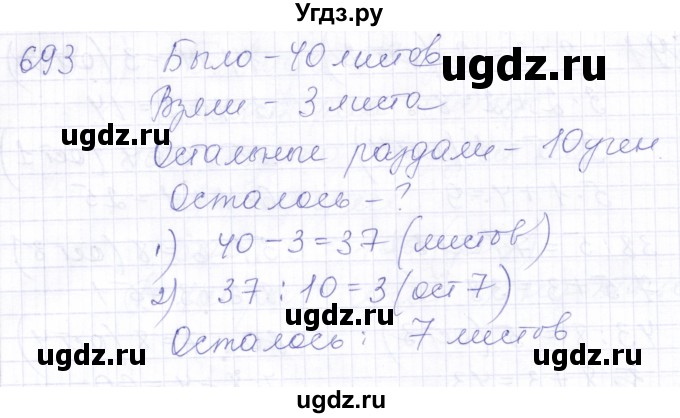 Угдз.ру
693 Было - 40 листов
Взяли - 3 листа
Остальные раздали - 10 учен.
Осталось - ?
1) 40 - 3 = 37 (листов)
2) 37 : 10 = 3 (ост 7)
Осталось: 7 листов
ugdz.ru
ugdz.ru
ugdz.ru
ugdz.ru
ugdz.ru
ugdz.ru
ugdz.ru
ugdz.ru